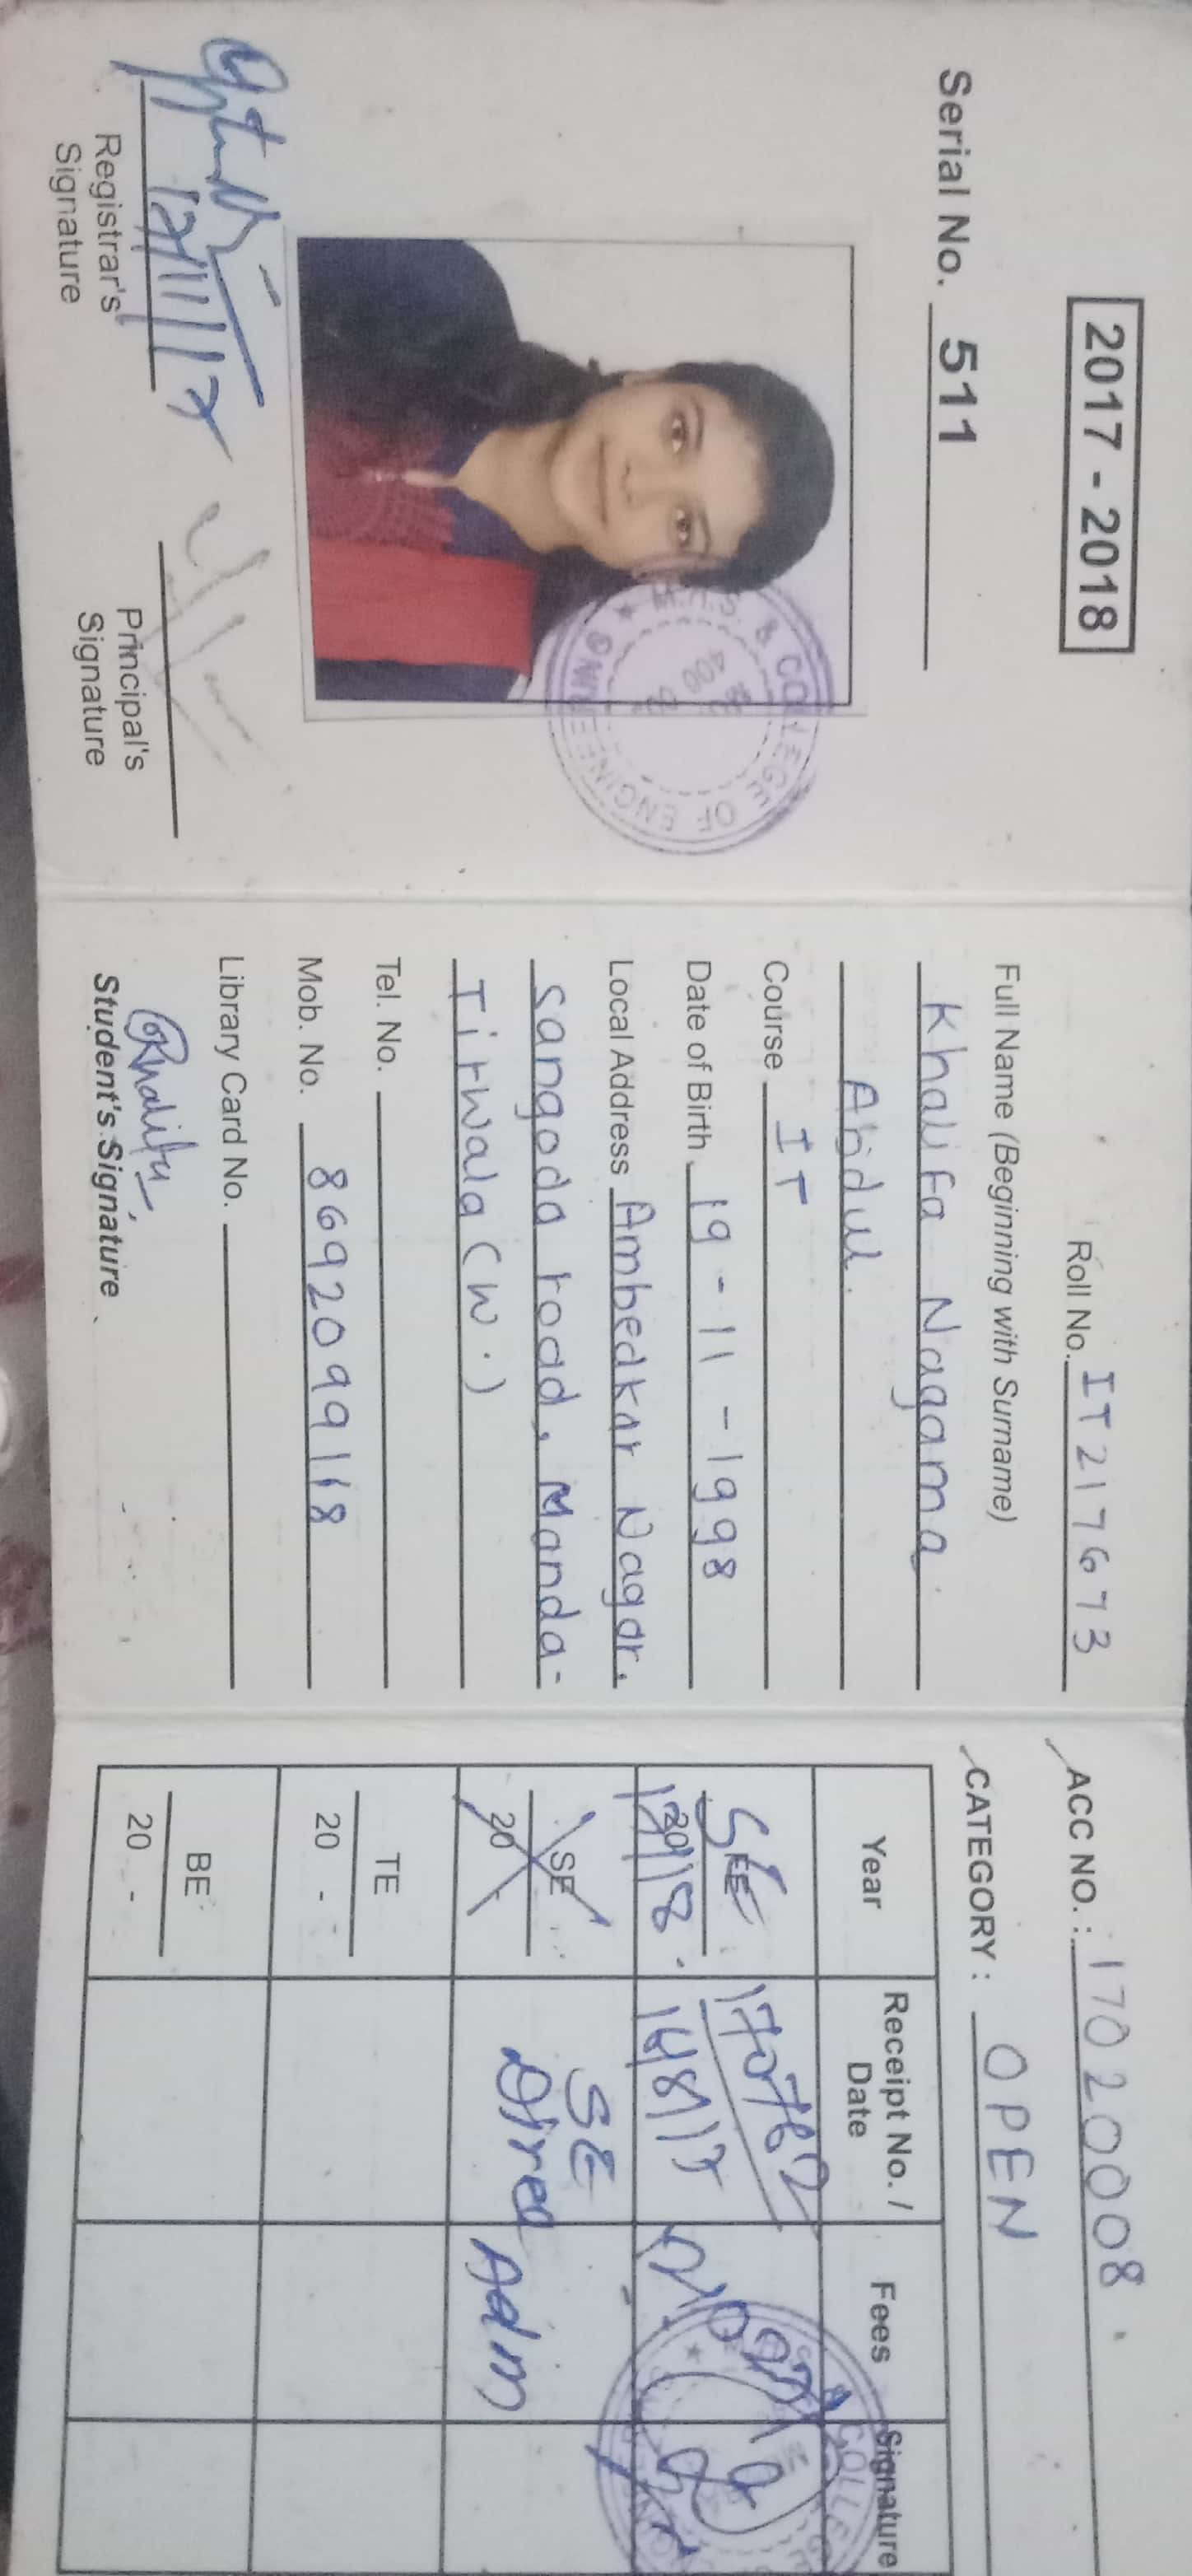 2017 - 2018
Serial No. 511
M.H.S. & COLLEGE OF ENGINEERING
400
12/11/17
Registrar's
Signature
Principal's
Signature
Roll No. IT217673
Full Name (Beginning with Surname)
Khalifa Nagama
Abdul.
Course IT
Date of Birth 19-11-1998
Local Address Ambedkar Nagar,
sangoda road, Manda-
Titwala (W.)
Tel. No.
Mob. No. 8692099118
Library Card No.
Khalifa
Student's Signature
ACC NO. : 17020008
CATEGORY : OPEN
Year Receipt No. / Date Fees Signature
SE FE
2017/18 14/8/17
SE 20
SE
Direct Adm
TE
20 -
BE
20 -